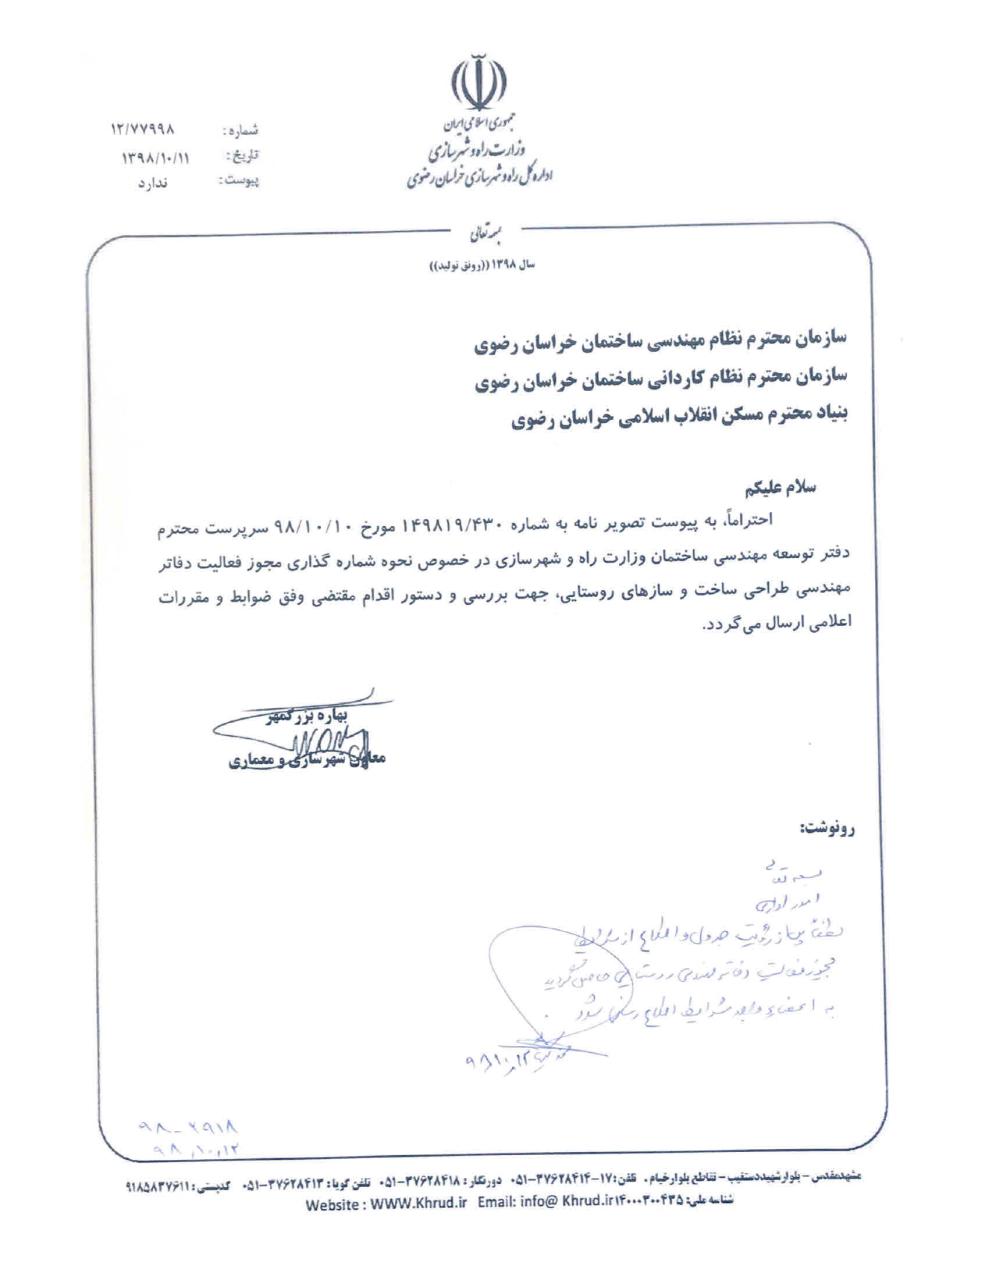 جمهوری اسلامی ایران
وزارت راه و شهرسازی
اداره کل راه و شهرسازی خراسان رضوی
شماره: ۱۲/۷۷۹۹۸
تاریخ: ۱۳۹۸/۱۰/۱۱
پیوست: ندارد
بسمه تعالی
سال ۱۳۹۸ ((رونق تولید))
سازمان محترم نظام مهندسی ساختمان خراسان رضوی
سازمان محترم نظام کاردانی ساختمان خراسان رضوی
بنیاد محترم مسکن انقلاب اسلامی خراسان رضوی
سلام علیکم
احتراماً، به پیوست تصویر نامه به شماره ۱۴۹۸۱۹/۴۳۰ مورخ ۹۸/۱۰/۱۰ سرپرست محترم
دفتر توسعه مهندسی ساختمان وزارت راه و شهرسازی در خصوص نحوه شماره گذاری مجوز فعالیت دفاتر
مهندسی طراحی ساخت و سازهای روستایی، جهت بررسی و دستور اقدام مقتضی وفق ضوابط و مقررات
اعلامی ارسال می‌گردد.
بهاره بزرگمهر
معاون شهرسازی و معماری
رونوشت:
بسمه تعالی
امور اداری
لطفاً پس از رؤیت جدول و اطلاع از شرایط
مجوز فعالیت دفاتر مهندسی روستایی
به اعضاء واجد شرایط اطلاع رسانی شود
۹۸-۲۹۱۸
۹۸,۱۰,۱۲
مشهدمقدس – بلوار شهیددستغیب – تقاطع بلوار خیام . تلفن: ۱۷-۳۷۶۲۸۴۱۴-۰۵۱ دورنگار: ۳۷۶۲۸۴۱۸-۰۵۱ تلفن گویا: ۳۷۶۲۸۴۱۳-۰۵۱ کدپستی: ۹۱۸۵۸۳۷۶۱۱
شناسه ملی: ۱۴۰۰۰۳۰۰۴۳۵ Website : WWW.Khrud.ir Email: info@ Khrud.ir